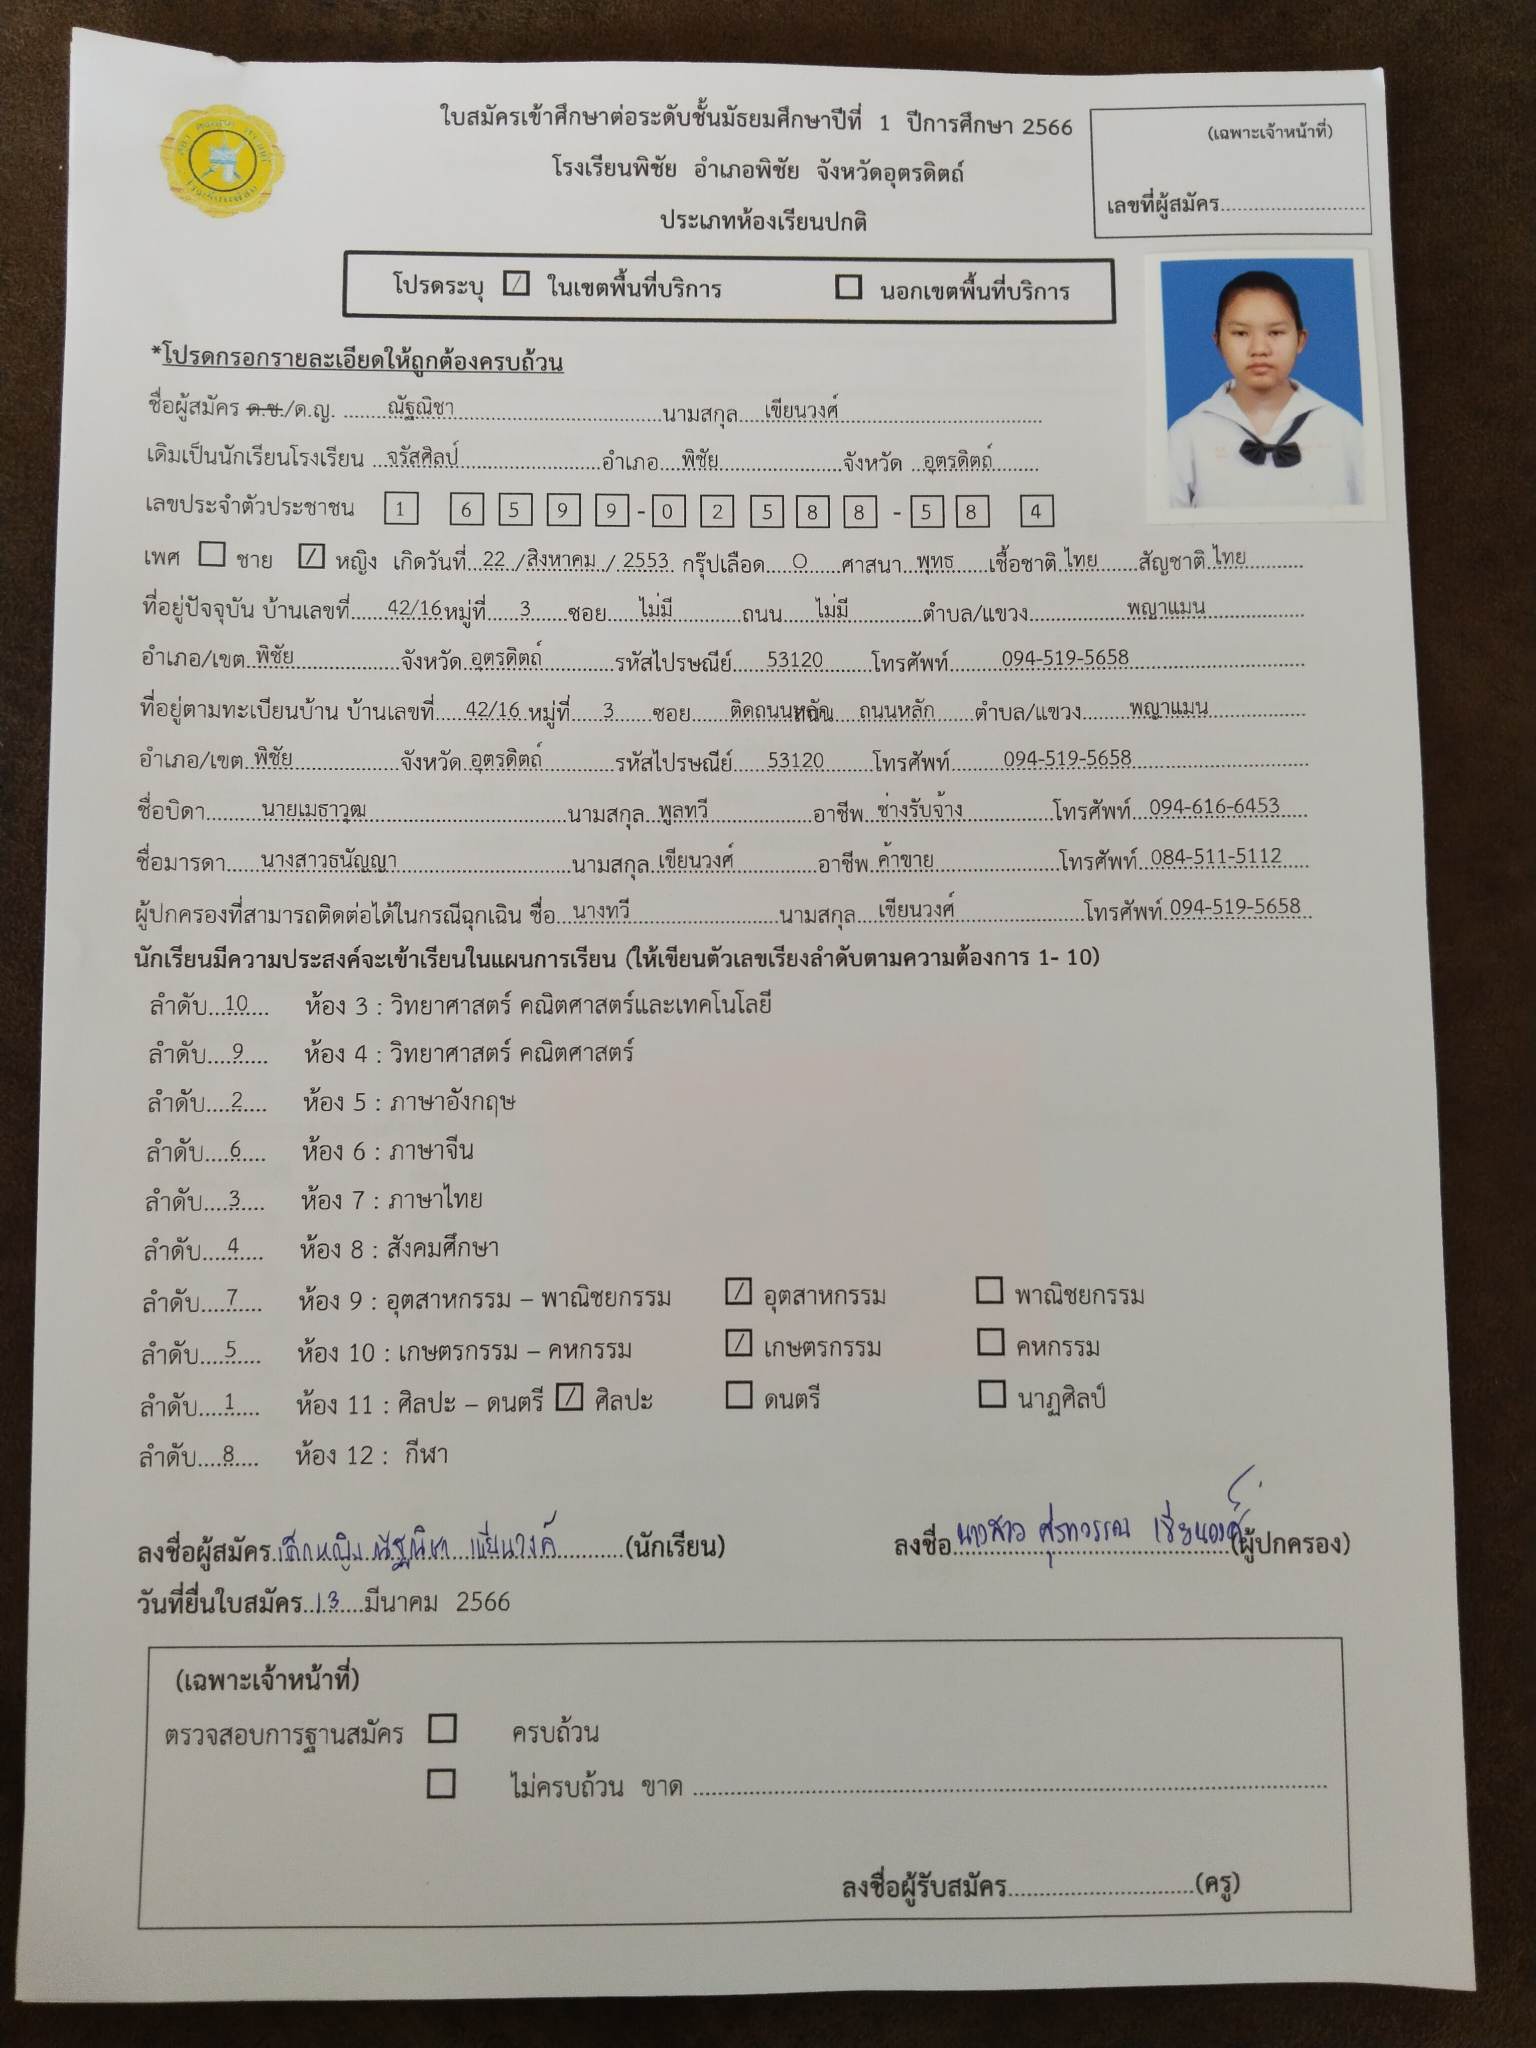 ใบสมัครเข้าศึกษาต่อระดับชั้นมัธยมศึกษาปีที่ 1 ปีการศึกษา 2566
(เฉพาะเจ้าหน้าที่)
โรงเรียนพิชัย อำเภอพิชัย จังหวัดอุตรดิตถ์
เลขที่ผู้สมัคร
ประเภทห้องเรียนปกติ
โปรดระบุ / ในเขตพื้นที่บริการ นอกเขตพื้นที่บริการ
*โปรดกรอกรายละเอียดให้ถูกต้องครบถ้วน
ชื่อผู้สมัคร ด.ช./ด.ญ. ณัฐณิชา นามสกุล เขียนวงศ์
เดิมเป็นนักเรียนโรงเรียน จรัสศิลป์ อำเภอ พิชัย จังหวัด อุตรดิตถ์
เลขประจำตัวประชาชน 1 6 5 9 9 - 0 2 5 8 8 - 5 8 4
เพศ ชาย / หญิง เกิดวันที่ 22 / สิงหาคม / 2553 กรุ๊ปเลือด O ศาสนา พุทธ เชื้อชาติ ไทย สัญชาติ ไทย
ที่อยู่ปัจจุบัน บ้านเลขที่ 42/16 หมู่ที่ 3 ซอย ไม่มี ถนน ไม่มี ตำบล/แขวง พญาแมน
อำเภอ/เขต พิชัย จังหวัด อุตรดิตถ์ รหัสไปรษณีย์ 53120 โทรศัพท์ 094-519-5658
ที่อยู่ตามทะเบียนบ้าน บ้านเลขที่ 42/16 หมู่ที่ 3 ซอย ติดถนนหลัก ถนน ถนนหลัก ตำบล/แขวง พญาแมน
อำเภอ/เขต พิชัย จังหวัด อุตรดิตถ์ รหัสไปรษณีย์ 53120 โทรศัพท์ 094-519-5658
ชื่อบิดา นายเมธาวุฒ นามสกุล พูลทวี อาชีพ ช่างรับจ้าง โทรศัพท์ 094-616-6453
ชื่อมารดา นางสาวธนัญญา นามสกุล เขียนวงศ์ อาชีพ ค้าขาย โทรศัพท์ 084-511-5112
ผู้ปกครองที่สามารถติดต่อได้ในกรณีฉุกเฉิน ชื่อ นางทวี นามสกุล เขียนวงศ์ โทรศัพท์ 094-519-5658
นักเรียนมีความประสงค์จะเข้าเรียนในแผนการเรียน (ให้เขียนตัวเลขเรียงลำดับตามความต้องการ 1- 10)
ลำดับ 10 ห้อง 3 : วิทยาศาสตร์ คณิตศาสตร์และเทคโนโลยี
ลำดับ 9 ห้อง 4 : วิทยาศาสตร์ คณิตศาสตร์
ลำดับ 2 ห้อง 5 : ภาษาอังกฤษ
ลำดับ 6 ห้อง 6 : ภาษาจีน
ลำดับ 3 ห้อง 7 : ภาษาไทย
ลำดับ 4 ห้อง 8 : สังคมศึกษา
ลำดับ 7 ห้อง 9 : อุตสาหกรรม – พาณิชยกรรม / อุตสาหกรรม พาณิชยกรรม
ลำดับ 5 ห้อง 10 : เกษตรกรรม – คหกรรม / เกษตรกรรม คหกรรม
ลำดับ 1 ห้อง 11 : ศิลปะ – ดนตรี / ศิลปะ ดนตรี นาฏศิลป์
ลำดับ 8 ห้อง 12 : กีฬา
ลงชื่อผู้สมัคร เด็กหญิง ณัฐณิชา เขียนวงศ์ (นักเรียน) ลงชื่อ นางสาว เขียนวงศ์ (ผู้ปกครอง)
วันที่ยื่นใบสมัคร 13 มีนาคม 2566
(เฉพาะเจ้าหน้าที่)
ตรวจสอบการฐานสมัคร ครบถ้วน
ไม่ครบถ้วน ขาด
ลงชื่อผู้รับสมัคร (ครู)